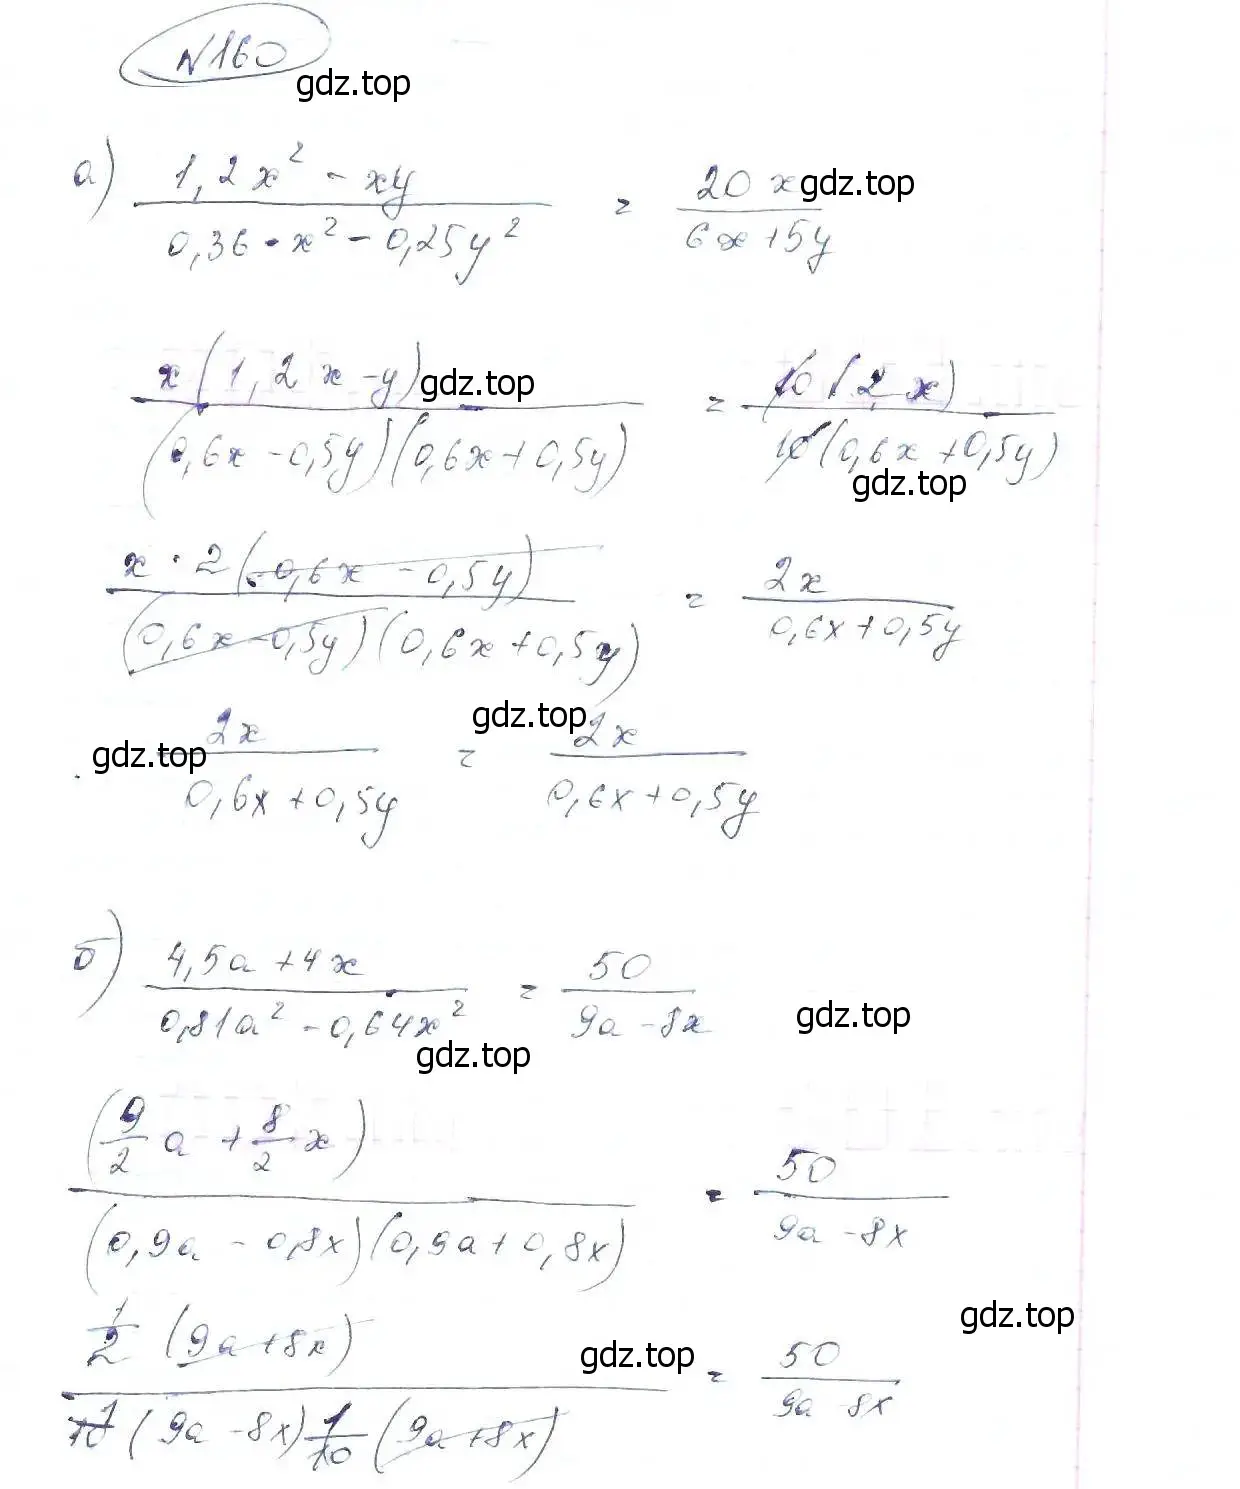 N160
gdz.top
а) (1,2x² - xy)/(0,36·x² - 0,25y²) = 20x/(6x+5y)
gdz.top
x(1,2x - y)/((0,6x - 0,5y)(0,6x + 0,5y)) = 10(2x)/(10(0,6x + 0,5y))
gdz.top
gdz.top
x·2(0,6x - 0,5y)/((0,6x - 0,5y)(0,6x + 0,5y)) = 2x/(0,6x + 0,5y)
gdz.top
gdz.top
2x/(0,6x + 0,5y) = 2x/(0,6x + 0,5y)
б) (4,5a + 4x)/(0,81a² - 0,64x²) = 50/(9a - 8x)
gdz.top
gdz.top
(9/2 a + 8/2 x)/((0,9a - 0,8x)(0,9a + 0,8x)) = 50/(9a - 8x)
gdz.top
1/2 (9a + 8x)/(1/10 (9a - 8x) 1/10 (9a + 8x)) = 50/(9a - 8x)
gdz.top